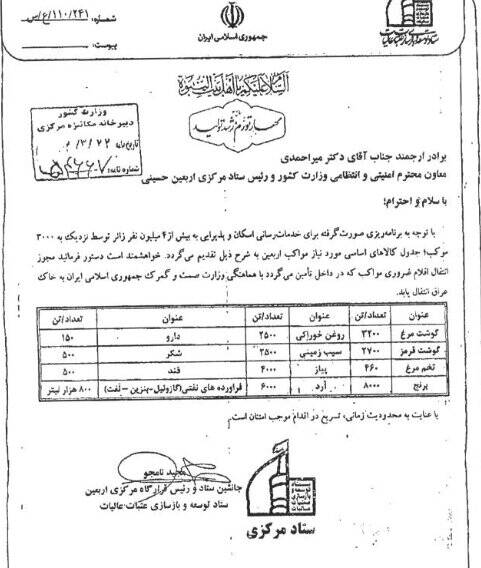 شماره: ۱۱۰/۲۴۱/ع/س
پیوست:
جمهوری اسلامی ایران
السلام علیکم یا اهل بیت النبوه
مهار تورم رشد تولید
وزارت کشور
دبیرخانه مکانیزه مرکزی
تاریخ نامه
شماره نامه:
برادر ارجمند جناب آقای دکتر میراحمدی
معاون محترم امنیتی و انتظامی وزارت کشور و رئیس ستاد مرکزی اربعین حسینی
با سلام و احترام؛
با توجه به برنامه‌ریزی صورت گرفته برای خدمات‌رسانی اسکان و پذیرایی به بیش از ۴ میلیون نفر زائر توسط نزدیک به ۳۰۰۰
موکب؛ جدول کالاهای اساسی مورد نیاز مواکب اربعین به شرح ذیل تقدیم می‌گردد. خواهشمند است دستور فرمائید مجوز
انتقال اقلام ضروری مواکب که در داخل تأمین می‌گردد با هماهنگی وزارت صمت و گمرک جمهوری اسلامی ایران به خاک
عراق انتقال یابد.
عنوان تعداد/تن عنوان تعداد/تن عنوان تعداد/تن
گوشت مرغ ۳۲۰۰ روغن خوراکی ۲۵۰۰ دارو ۱۵۰
گوشت قرمز ۲۷۰۰ سیب زمینی ۳۵۰۰ شکر ۵۰۰
تخم مرغ ۴۶۰ پیاز ۴۰۰۰ قند ۵۰۰
برنج ۸۰۰۰ آرد ۶۰۰۰ فراورده های نفتی(گازوئیل-بنزین-نفت) ۸۰۰ هزار لیتر
با عنایت به محدودیت زمانی، تسریع در اقدام موجب امتنان است.
مجید نامجو
جانشین ستاد و رئیس قرارگاه مرکزی اربعین
ستاد توسعه و بازسازی عتبات عالیات
ستاد
توسعه و
بازسازی
عتبات
عالیات
ستاد مرکزی